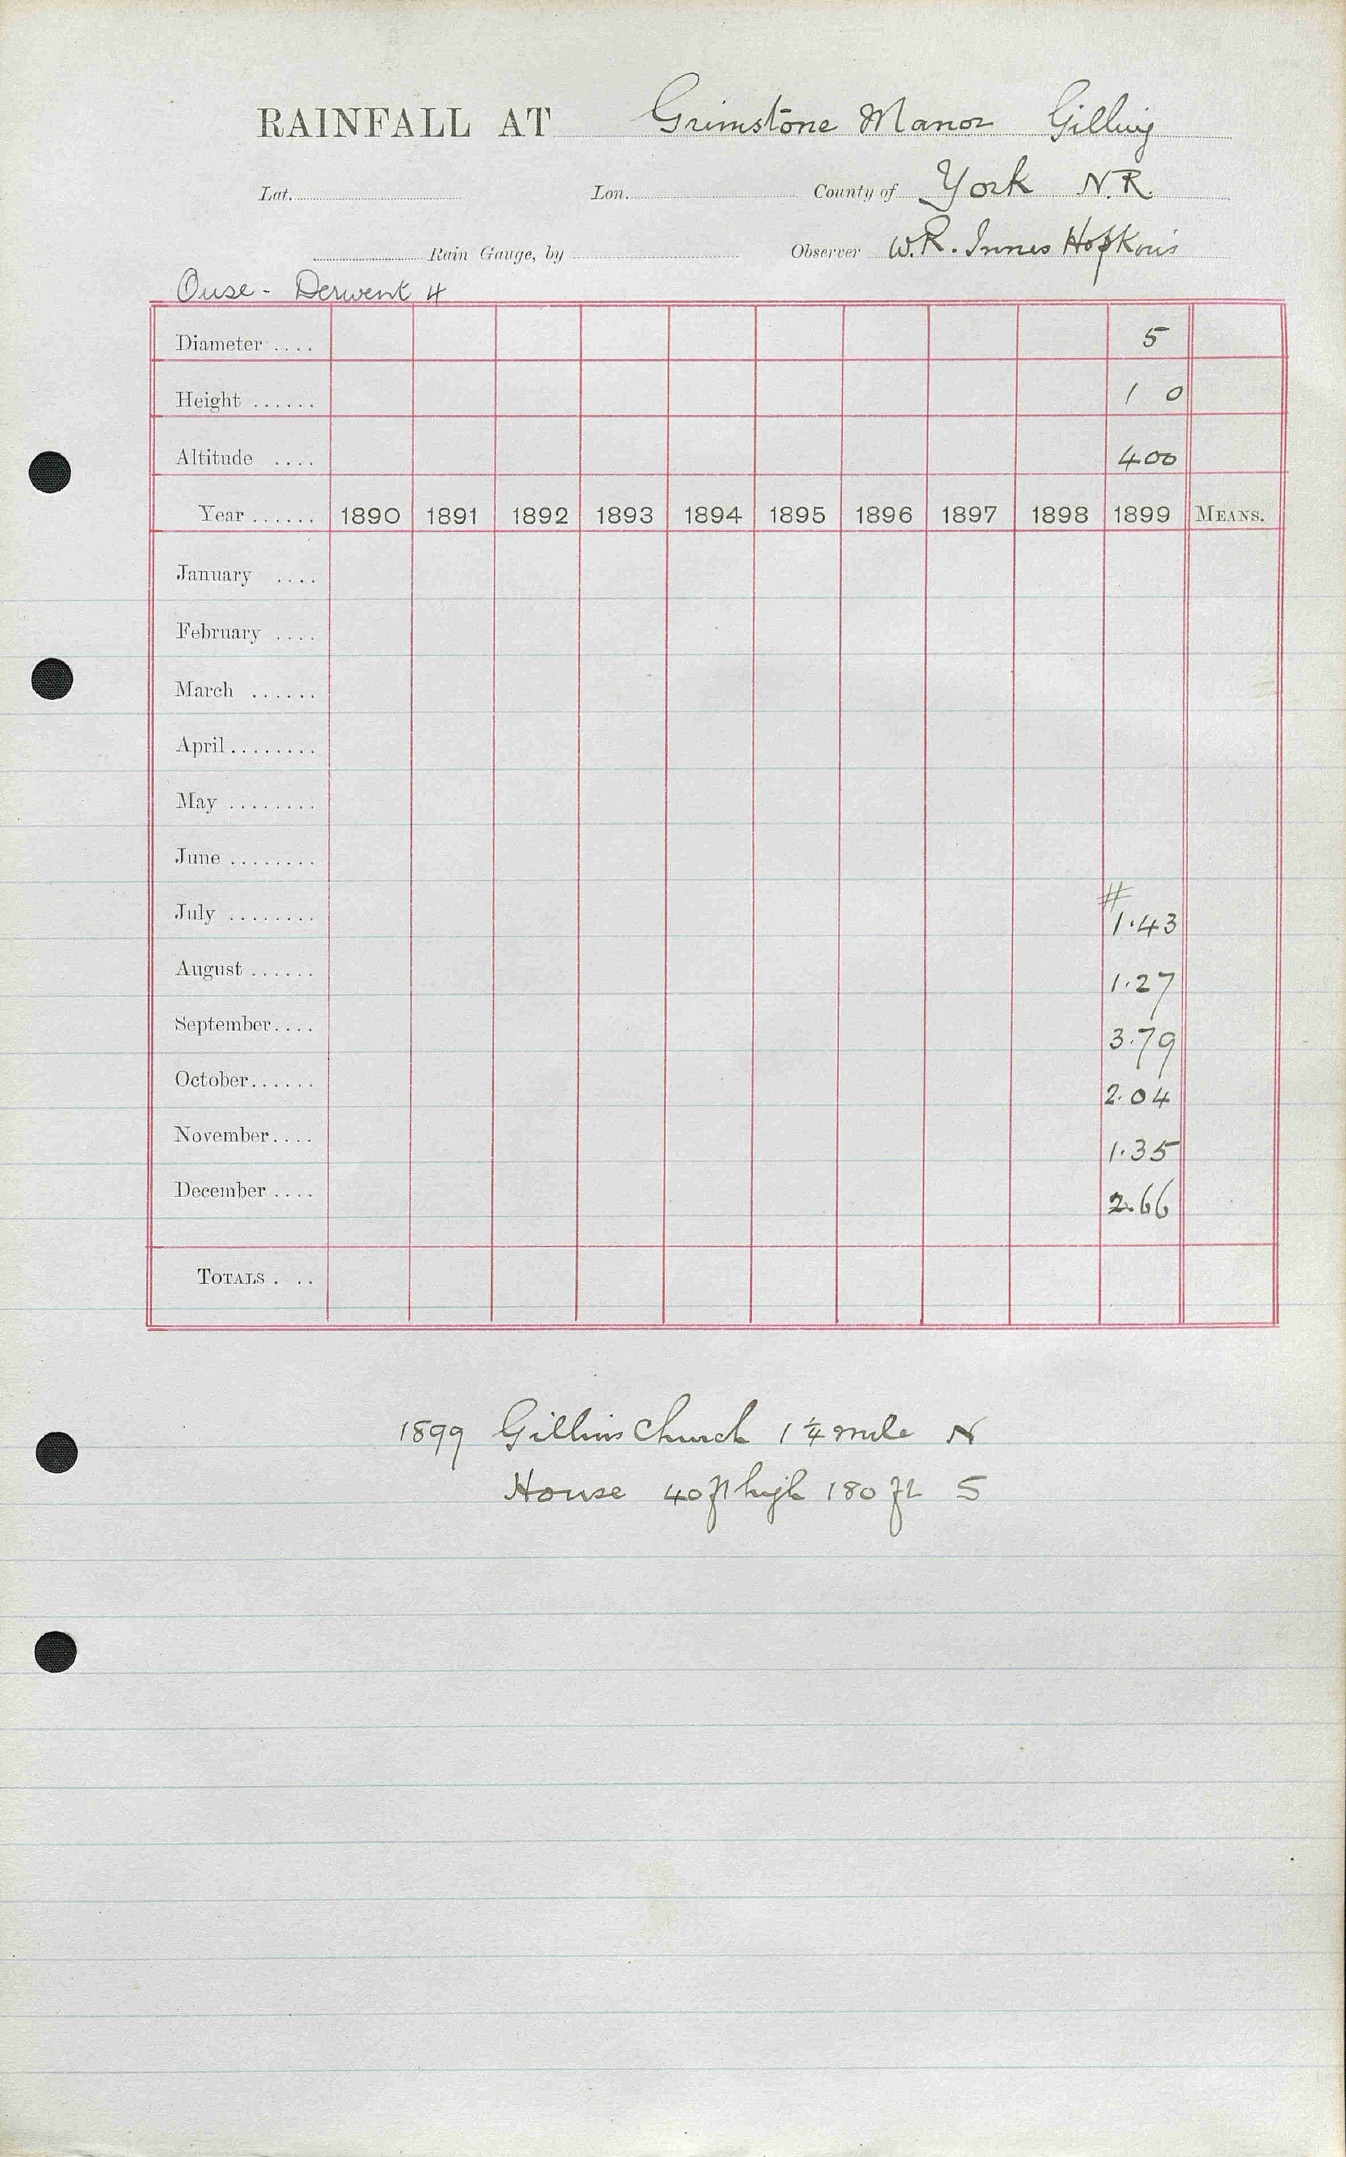 RAINFALL AT Grimstone Manor Gilling
Lat. Lon. County of York N.R.
Rain Gauge, by Observer W.R. Innes Hopkins
Ouse - Derwent 4
Diameter .... 5
Height ...... 1 0
Altitude .... 400
Year ...... 1890 1891 1892 1893 1894 1895 1896 1897 1898 1899 MEANS.
January ....
February ....
March ......
April ........
May ........
June ........
#
July ........ 1.43
August ...... 1.27
September.... 3.79
October...... 2.04
November.... 1.35
December .... 2.66
TOTALS . ..
1899 Gilling Church 1 1/4 mile N
House 40 ft high 180 ft S